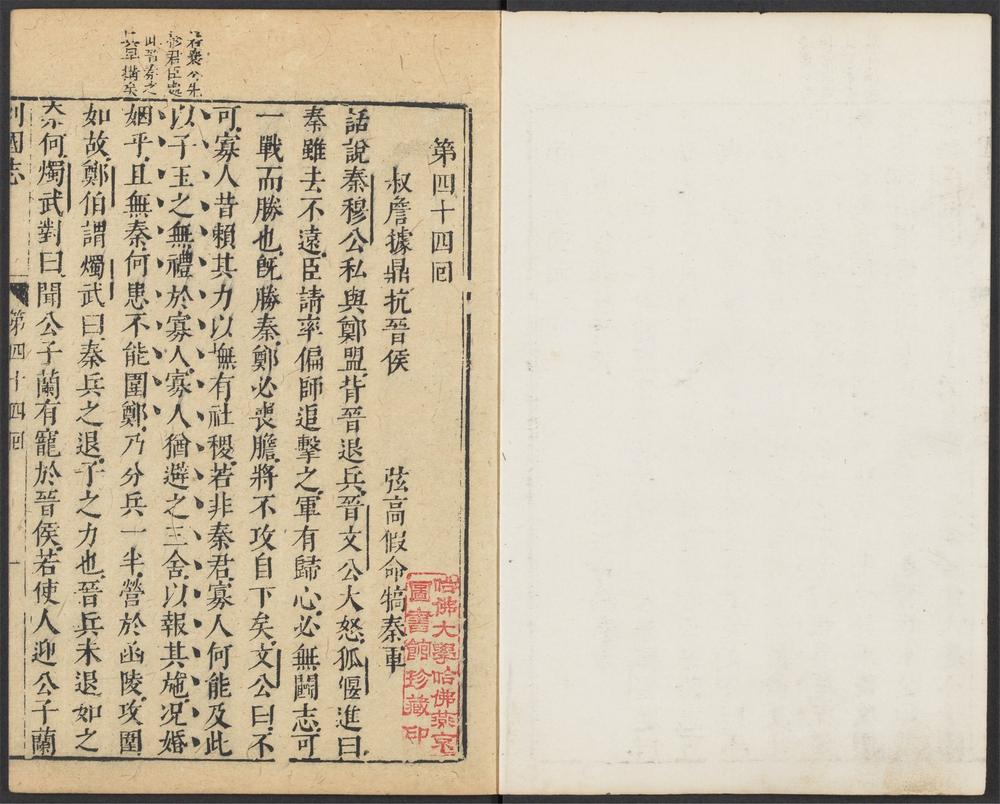 第四十四回
叔詹據鼎抗晉侯 弦高假命犒秦軍
話說秦穆公私與鄭盟背晉退兵晉文公大怒狐偃進曰
秦雖去不遠臣請率偏師追擊之軍有歸心必無鬬志可
一戰而勝也旣勝秦鄭必喪膽將不攻自下矣文公曰不
可寡人昔賴其力以撫有社稷若非秦君寡人何能及此
以子玉之無禮於寡人寡人猶避之三舍以報其施况婚
姻乎且無秦何患不能圍鄭乃分兵一半營於函陵攻圍
如故鄭伯謂燭武曰秦兵之退子之力也晉兵未退如之
奈何燭武對曰聞公子蘭有寵於晉侯若使人迎公子蘭
列國志 第四十四回 一
哈佛大學哈佛燕京
圖書館珍藏印